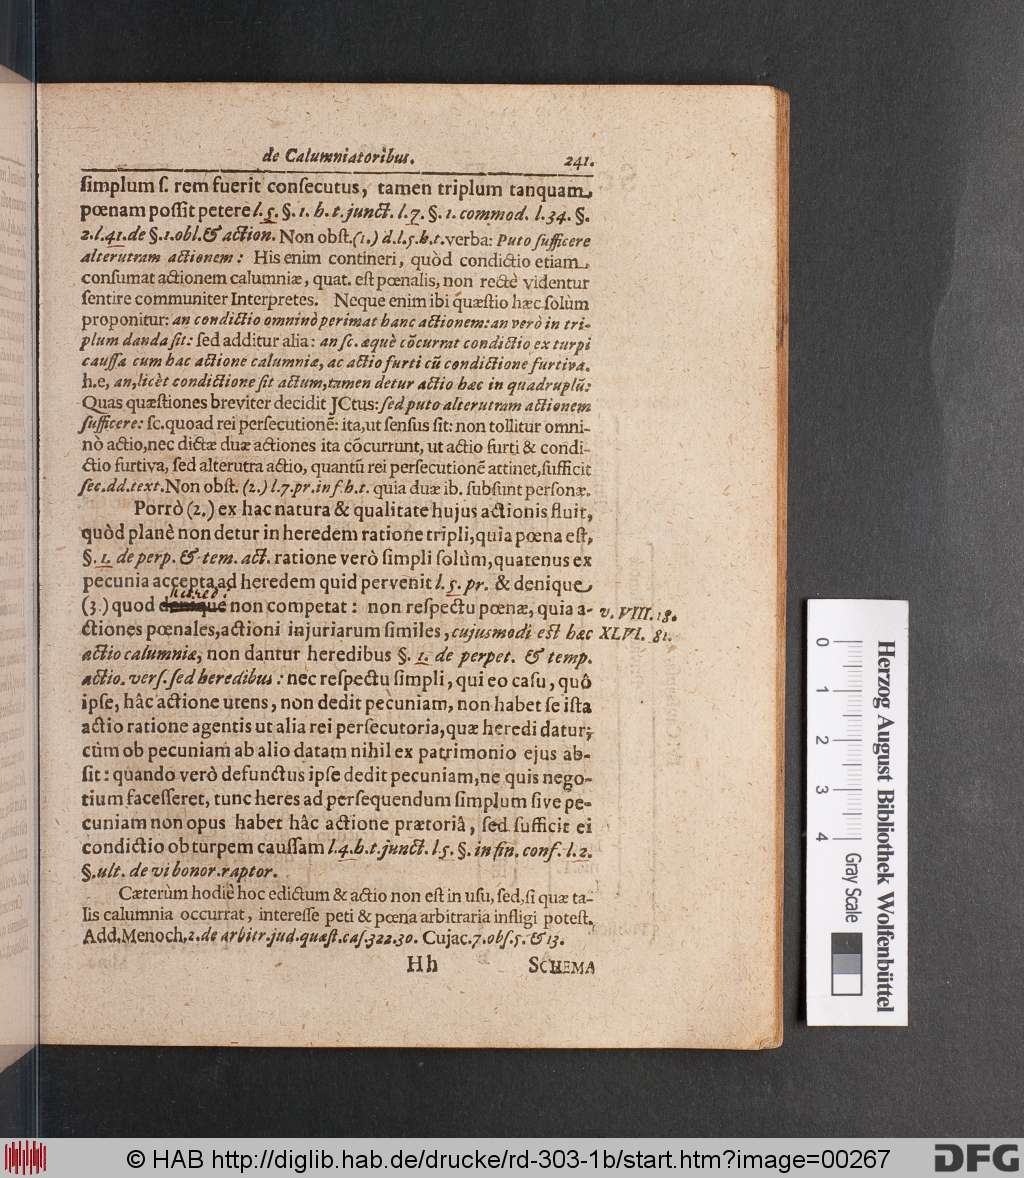 de Calumniatoribus. 241.
ſimplum ſ. rem fuerit conſecutus, tamen triplum tanquam
pœnam poſſit petere l. 5. §. 1. h. t. junct. l. 7. §. 1. commod. l. 34. §.
2. l. 41. de §. 1. obl. & action. Non obſt. (1.) d. l. 5. h. t. verba: Puto ſufficere
alterutram actionem: His enim contineri, quòd condictio etiam
conſumat actionem calumniæ, quat. eſt pœnalis, non rectè videntur
ſentire communiter Interpretes. Neque enim ibi quæſtio hæc ſolùm
proponitur: an condictio omninò perimat hanc actionem: an verò in tri-
plum danda ſit: ſed additur alia: an ſc. æquè cõcurrat condictio ex turpi
cauſſa cum hac actione calumniæ, ac actio furti cũ condictione furtiva.
h. e, an, licèt condictione ſit actum, tamen detur actio hæc in quadruplũ:
Quas quæſtiones breviter decidit JCtus: ſed puto alterutram actionem
ſufficere: ſc. quoad rei perſecutionẽ: ita, ut ſenſus ſit: non tollitur omni-
nò actio, nec dictæ duæ actiones ita cõcurrunt, ut actio furti & condi-
ctio furtiva, ſed alterutra actio, quantũ rei perſecutionẽ attinet, ſufficit
ſec. dd. text. Non obſt. (2.) l. 7. pr. in f. h. t. quia duæ ib. ſubſunt perſonæ.
Porrò (2.) ex hac natura & qualitate hujus actionis fluit,
quòd planè non detur in heredem ratione tripli, quia pœna eſt,
§. 1. de perp. & tem. act. ratione verò ſimpli ſolùm, quatenus ex
pecunia accepta ad heredem quid pervenit l. 5. pr. & denique
heredi
(3.) quod denique non competat: non reſpectu pœnæ, quia a- v. VIII. 18.
ctiones pœnales, actioni injuriarum ſimiles, cujusmodi eſt hæc XLVI. 81.
actio calumniæ, non dantur heredibus §. 1. de perpet. & temp.
actio. verſ. ſed heredibus: nec reſpectu ſimpli, qui eo caſu, quô
ipſe, hâc actione utens, non dedit pecuniam, non habet ſe iſta
actio ratione agentis ut alia rei perſecutoria, quæ heredi datur;
cùm ob pecuniam ab alio datam nihil ex patrimonio ejus ab-
ſit: quando verò defunctus ipſe dedit pecuniam, ne quis nego-
tium faceſſeret, tunc heres ad perſequendum ſimplum ſive pe-
cuniam non opus habet hâc actione prætoriâ, ſed ſufficit ei
condictio ob turpem cauſſam l. 4. h. t. junct. l. 5. §. in fin. conf. l. 2.
§. ult. de vi bonor. raptor.
Cæterùm hodiè hoc edictum & actio non eſt in uſu, ſed, ſi quæ ta-
lis calumnia occurrat, intereſſe peti & pœna arbitraria infligi poteſt.
Add. Menoch. 2. de arbitr. jud. quæſt. caſ. 322. 30. Cujac. 7. obſ. 5. & 13.
Hh SCHEMA
0 1 2 3 4 Gray Scale
Herzog August Bibliothek Wolfenbüttel
© HAB http://diglib.hab.de/drucke/rd-303-1b/start.htm?image=00267 DFG